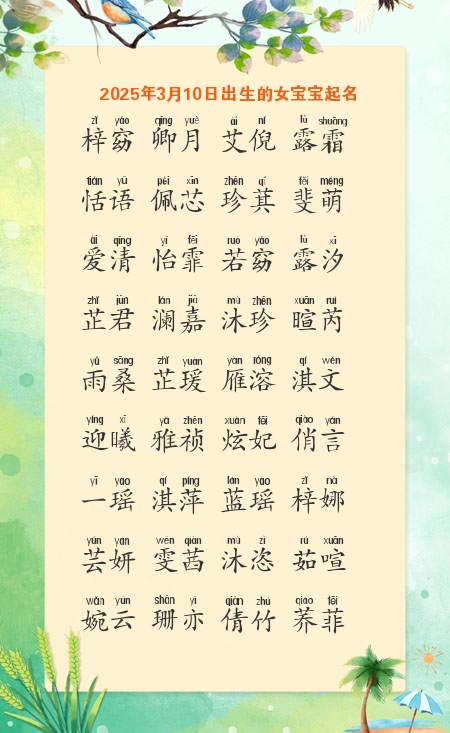 2025年3月10日出生的女宝宝起名
zǐ yǎo qīng yuè ài ní lù shuāng
梓窈 卿月 艾倪 露霜
tián yǔ pèi xīn zhēn qí fěi méng
恬语 佩芯 珍萁 斐萌
ài qīng yí fēi ruò yǎo lù xī
爱清 怡霏 若窈 露汐
zhǐ jūn lán jiā mù zhēn xuān ruì
芷君 澜嘉 沐珍 暄芮
yǔ sāng zhǐ yuàn yàn róng qí wén
雨桑 芷瑗 雁溶 淇文
yíng xī yǎ zhēn xuàn fēi qiào yán
迎曦 雅祯 炫妃 俏言
yī yáo qí píng lán yáo zǐ nà
一瑶 淇萍 蓝瑶 梓娜
yún yán wén qiàn mù zì rú xuān
芸妍 雯茜 沐恣 茹喧
wǎn yún shān yì qiàn zhú qiáo fēi
婉云 珊亦 倩竹 荞菲